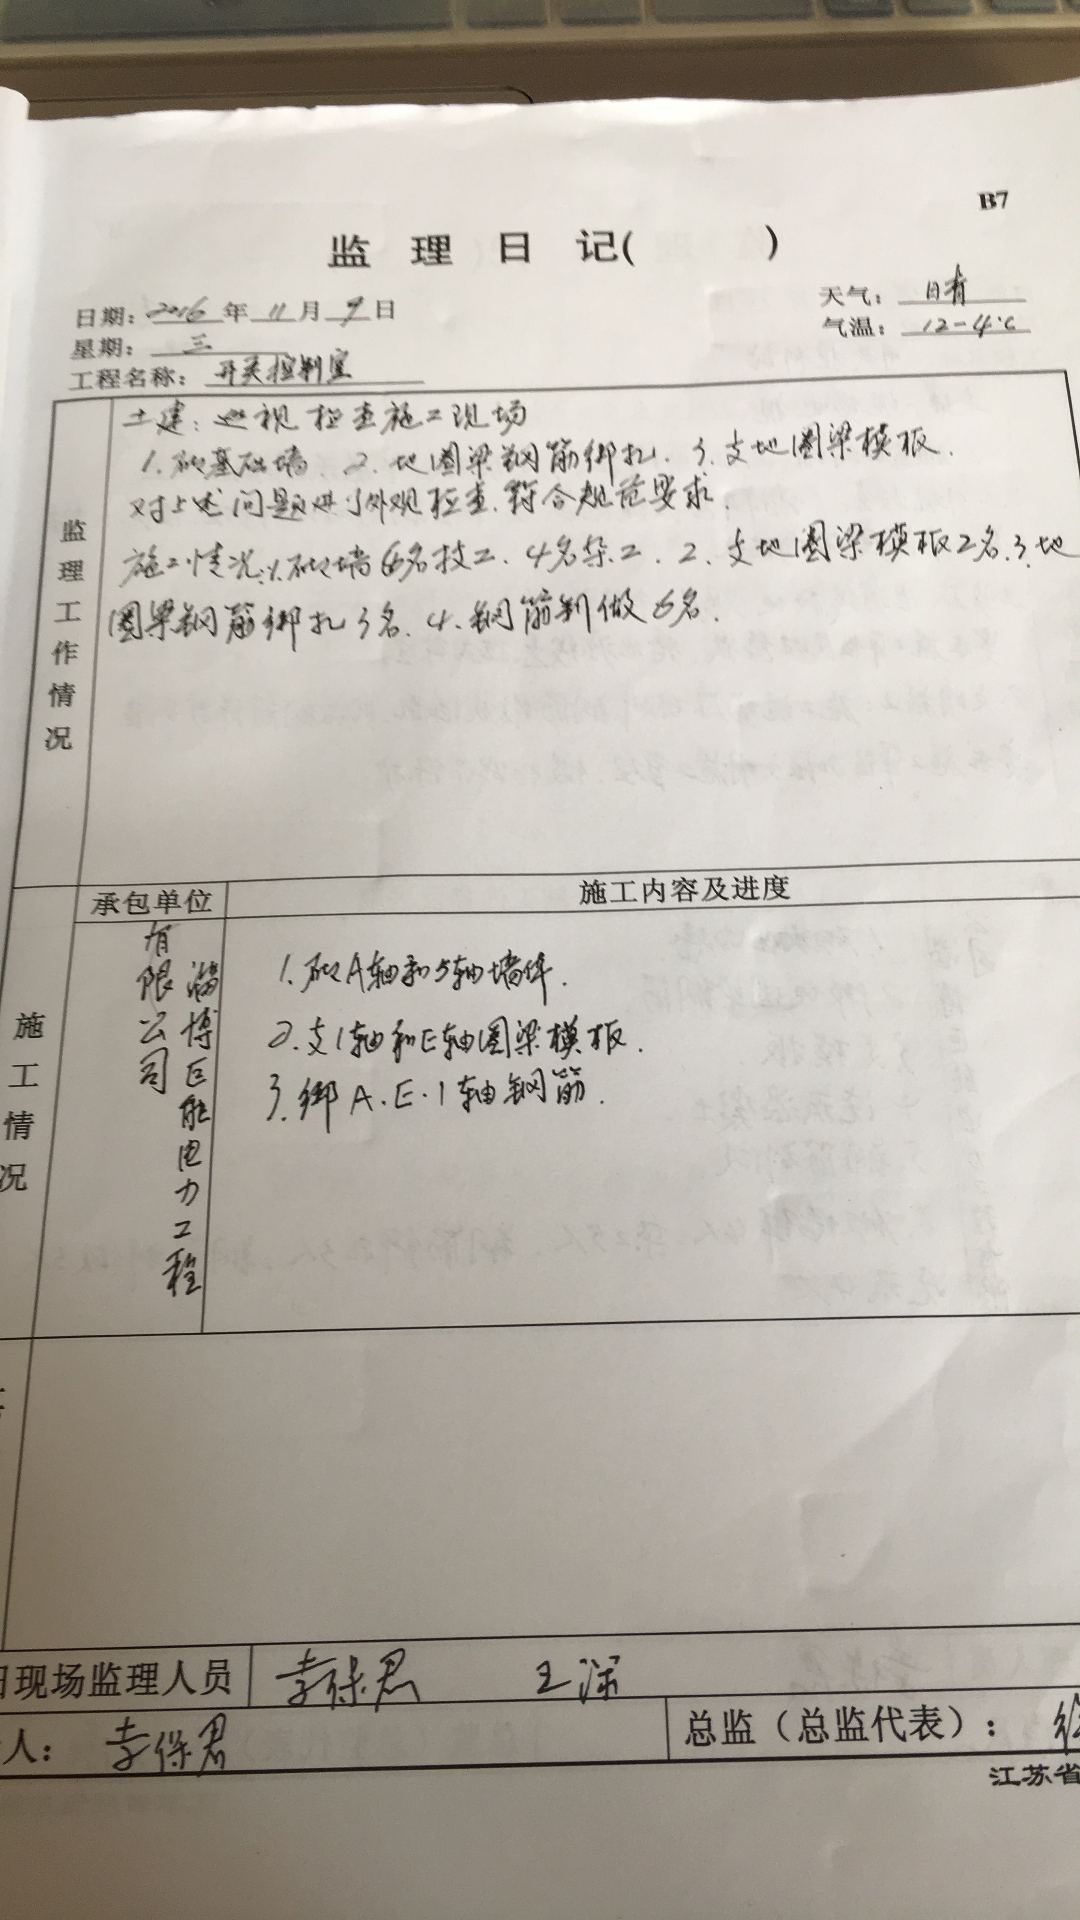 B7
监 理 日 记( )
日期: 2016 年 11 月 9 日
天气: 晴
星期: 三
气温: 12-4℃
工程名称: 开关控制室
监理工作情况
土建: 巡视检查施工现场
1. 砌基础墙. 2. 地圈梁钢筋绑扎. 3. 支地圈梁模板.
对上述问题进行外观检查. 符合规范要求.
施工情况: 1. 砌墙6名技工. 4名杂工. 2. 支地圈梁模板2名. 3. 地
圈梁钢筋绑扎3名. 4. 钢筋制做6名.
承包单位
施工内容及进度
施工情况
博巨能电力工程
有限公司
1. 砌A轴和5轴墙体.
2. 支1轴和E轴圈梁模板.
3. 绑A.E.1轴钢筋.
现场监理人员
李保君 王深
人: 李保君
总监（总监代表）:
江苏省